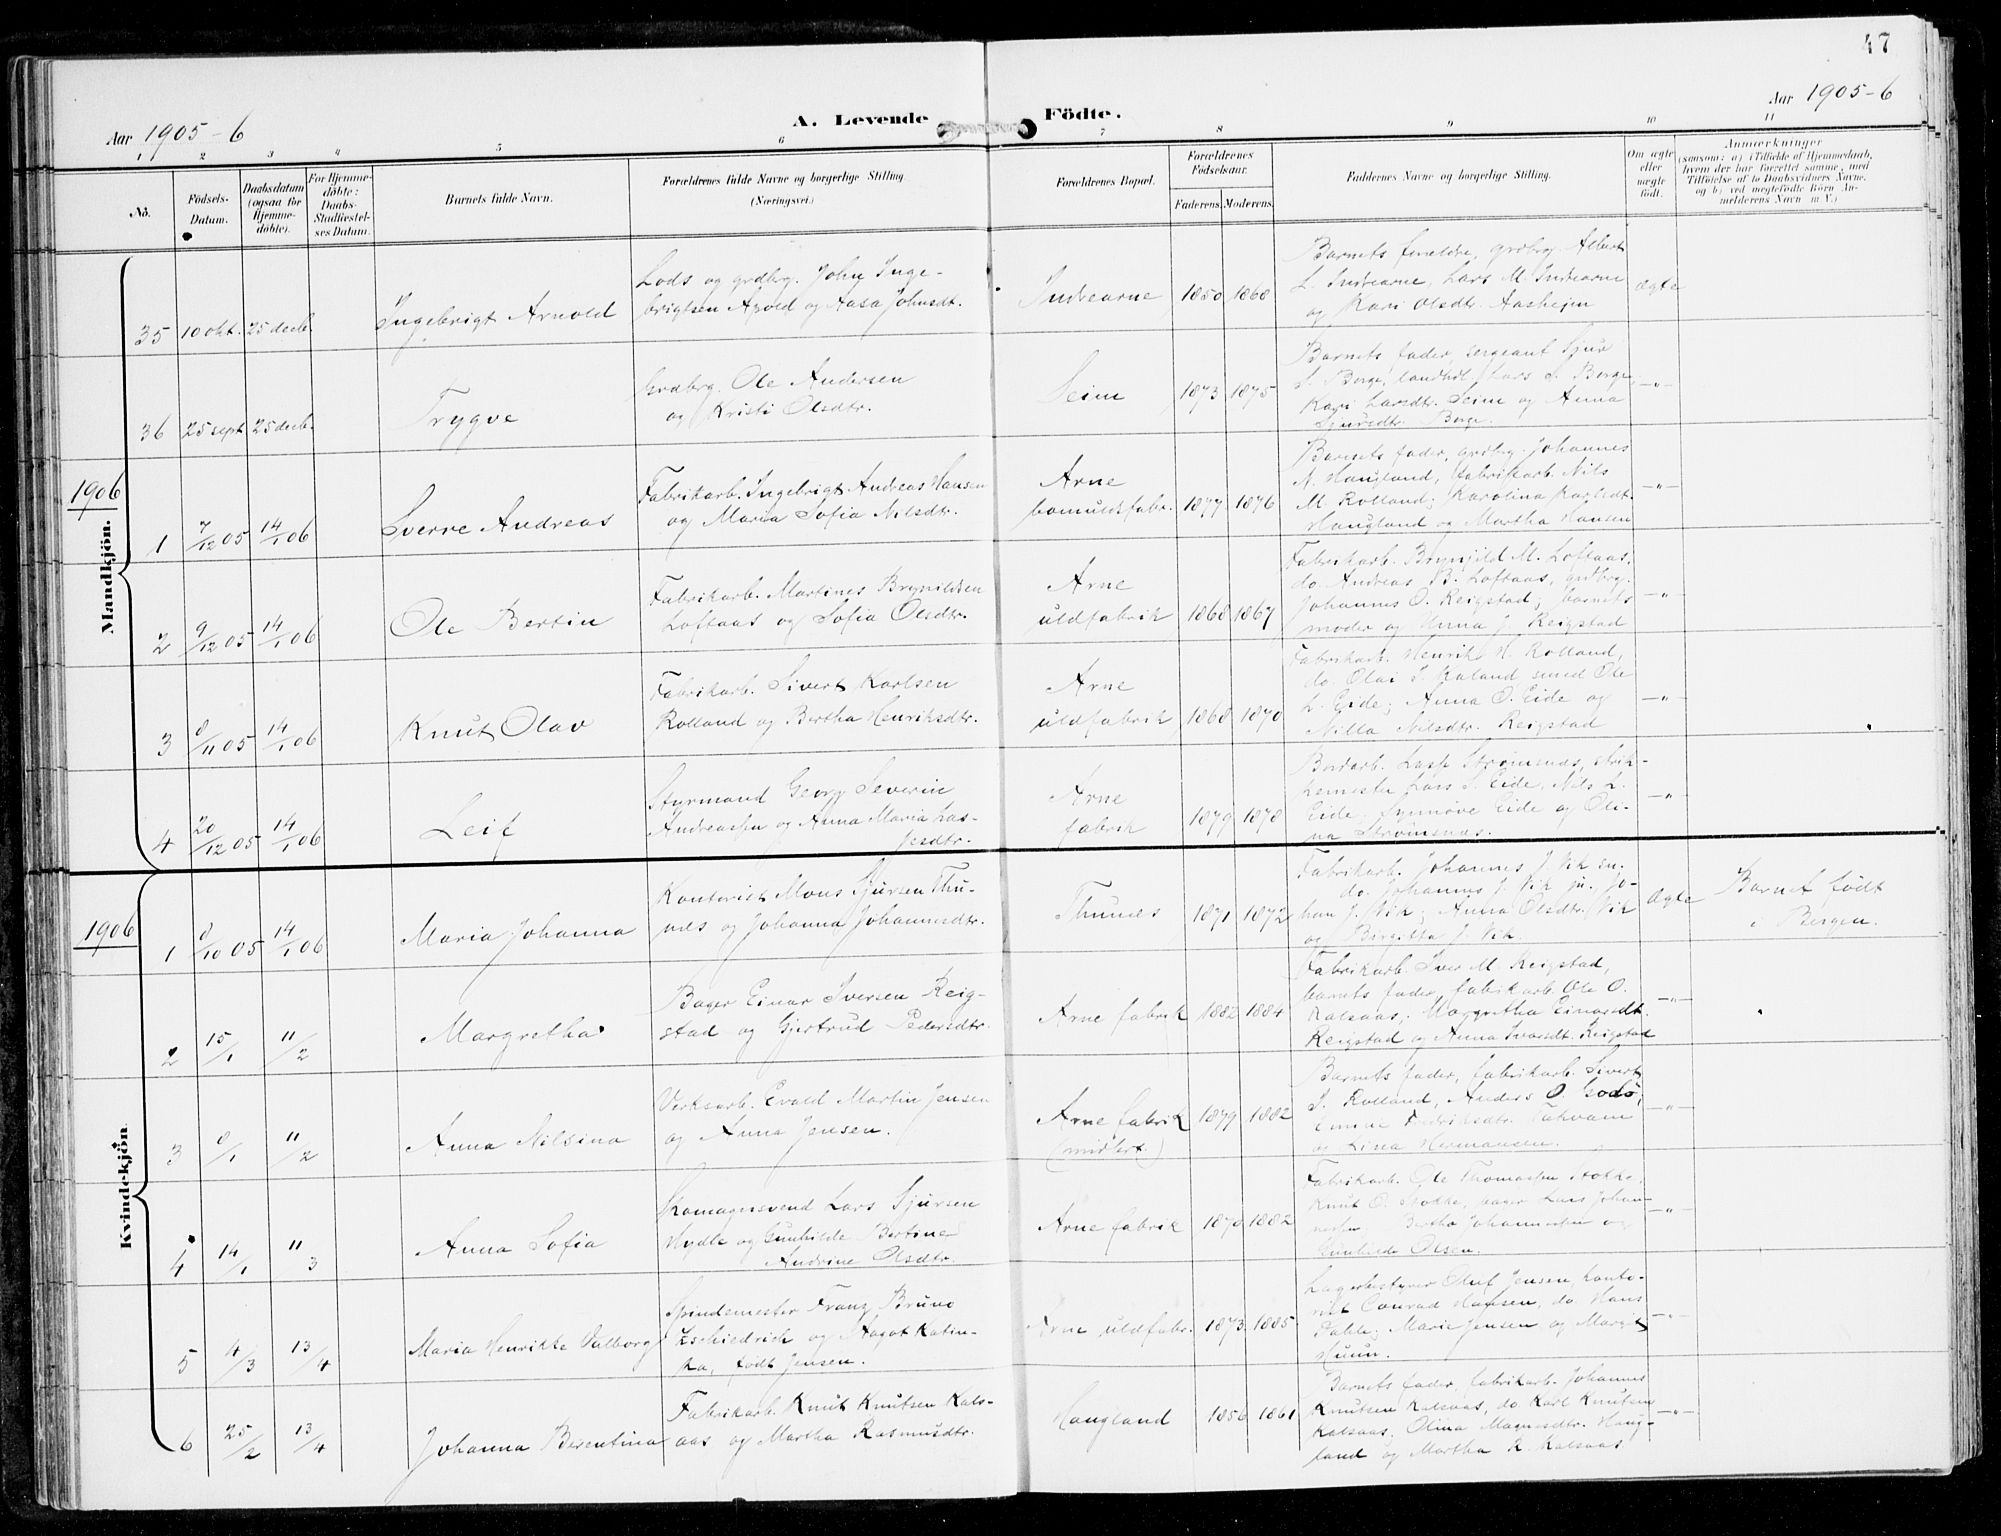 47
Aar 1905-6
A. Levende Födte.
Aar 1905-6
1 2 3 4 5 6 7 8 9 10 11
No. Födsels-Datum. Daabsdatum (ogsaa for Hjemmedöbte). For Hjemmedöbte: Daabs-Stadfæstelses Datum. Barnets fulde Navn. Forældrenes fulde Navne og borgerlige Stilling. (Næringsvei.) Forældrenes Bopæl. Forældrenes Födselsaar. Faderens. Moderens. Faddernes Navne og borgerlige Stilling. Om ægte eller uægte födt. Anmærkninger (saasom: a) i Tilfælde af Hjemmedaab, hvem der har forrettet samme, med Tilföielse af to Daabsvidners Navne, og b) ved uægtefödte Börn Anmelderens Navn m. V.)
Mandkjön.
35 10 okt. 25 decb. Ingebrigt Arnold
Lods og grdbrg. John Inge-
brigtsen Arvold og Aasa Johnsdt.
Indrearne 1850 1868
Barnets forældre, grdbrg. Albert
L. Indrearne, Lars M. Indrearne
og Kari Olsdtr. Aasheim
ægte
36 25 sept. 25 decb. Trygve
Grdbrg. Ole Andersen
og Kristi Olsdtr.
Seim 1873 1875
Barnets fader, sergeant Sjur
S. Borge, landhdl. Lars S. Borge,
Kari Larsdtr. Seim og Anna
Sjursdtr. Borge.
—"—
1906
1 7/12 05 14/1 06 Sverre Andreas
Fabrikarb. Ingebrigt Andreas Hansen
og Maria Sofia Nilsdtr.
Arne
bomuldsfabr. 1877 1876
Barnets fader, grdbrg. Johannes
N. Haugland, fabrikarb. Nils
M. Rolland; Karolina Karlsdt.
Haugland og Martha Hansen
—"—
2 9/12 05 14/1 06 Ole Bertin
Fabrikarb. Martines Brynildsen
Loftaas og Sofia Olsdtr.
Arne
uldfabrik 1868 1867
Fabrikarb. Brynjild M. Loftaas,
do Andreas B. Loftaas, grdbrg.
Johannes O. Reigstad; barnets
moder og Anna J. Reigstad
—"—
3 8/11 05 14/1 06 Knut Olav
Fabrikarb. Sivert Karlsen
Rolland og Bertha Henriksdtr.
Arne
uldfabrik 1868 1870
Fabrikarb. Henrik H. Rolland,
do. Olai S. Kaland smed Ole
L. Eide; Anna O. Eide og
Nilla Nilsdtr. Reigstad
—"—
4 20/12 05 14/1 06 Leif
Styrmand Georg Severin
Andreassen og Anna Maria Las-
sesdtr.
Arne
fabrik 1879 1878
Bordarb. Lasse Strømsnæs, strik-
kemester Lars S. Eide, Nils L.
Eide; Synnøve Eide og Oli-
na Strømsnæs.
—"—
1906
Kvindekjön
1 8/10 05 14/1 06 Maria Johanna
Kontorist Mons Sjursen Thu-
nes og Johanna Johannesdtr.
Thunes 1871 1872
Fabrikarb. Johannes J. Vik sn.
do. Johannes J. Vik jn. Jo-
han J. Vik; Anna Olsdtr. Vik
og Birgitta J. Vik.
Ægte
Barnet født
i Bergen.
2 15/1 11/2 Margretha
Bager Einar Iversen Reig-
stad og Gjertrud Pedersdtr.
Arne fabrik 1882 1884
Fabrikarb. Iver M. Reigstad,
barnets fader, fabrikarb. Ole O.
Kalsaas; Margretha Einarsdt.
Reigstad og Anna Ivarsdt. Reigstad
—"—
3 8/1 11/2 Anna Nilsina
Verksarb. Evald Martin Jensen
og Anna Jensen.
Arne fabrik
(midlert.) 1879 1882
Barnets fader, fabrikarb. Sivert
S. Rolland, Anders O. Godø,
Emma Fredriksdtr. Takvam
og Lina Hermansen.
—"—
4 14/1 11/3 Anna Sofia
Skomagersvend Lars Sjursen
Hydle og Gunhilde Bertine
Andrine Olsdtr.
Arne fabrik 1870 1882
Fabrikarb. Ole Thomassen Stokke,
Knut O. Stokke, bager Lars Johan-
nessen; Bertha Johannessen og
Gunhilde Olsen.
—"—
5 4/3 13/4 Maria Henrikke Valborg
Spindemester Franz Bruno
Zschiedrich og Dagot Katin-
ka, født Jensen.
Arne uldfabr. 1873 1885
Lagerbestyrer Oluf Jensen, konto-
rist Conrad Hansen, do. Hans
Dahle; Marie Jensen og Margit
Huun.
—"—
6 25/2 13/4 Johanna Berentina
Fabrikarb. Knut Knutsen Kals-
aas og Martha Rasmusdtr.
Haugland 1856 1861
Barnets fader, fabrikarb. Johannes
Knutsen Kalsaas, do Karl Knutsen
Kalsaas; Olina Magnesdtr. Haug-
land og Martha K. Kalsaas
—"—